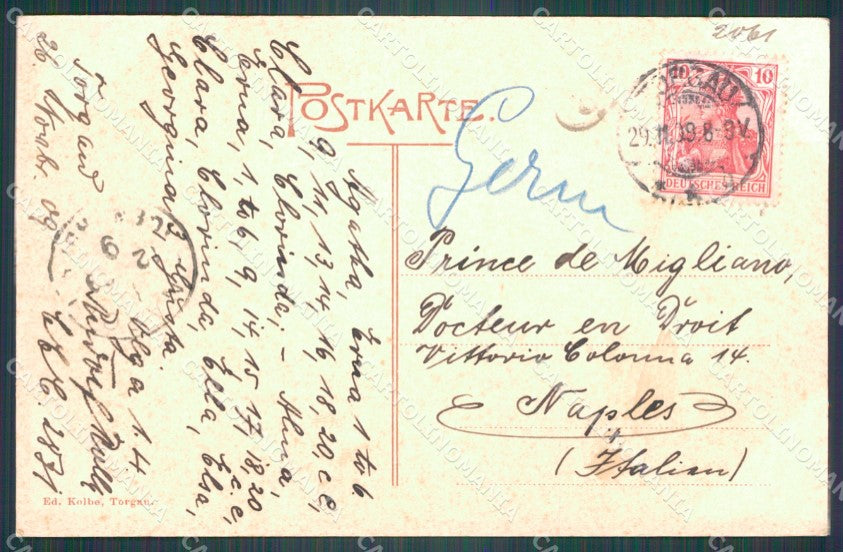 2061
POSTKARTE.
TORGAU
29.11.09.8-9V.
10
DEUTSCHES REICH
Germ
Prince de Migliano,
Docteur en Droit
Vittorio Colonna 14.
Naples
(Italien)
Agatha, Erna 1 to 6
9, 11, 13, 14, 16, 18, 20, c c,
Clara, Clorinda; - Alma,
Erna, 1 to 6, 9, 14, 15, 17, 18, 20
c. c,
Clara, Clorinda, Ella, Elsa,
Georgina, Gusta.
Olga 1.4.
Torgau
26 Novb. 09
Ed. Kolbe, Torgau.
CARTOLINOMANIA